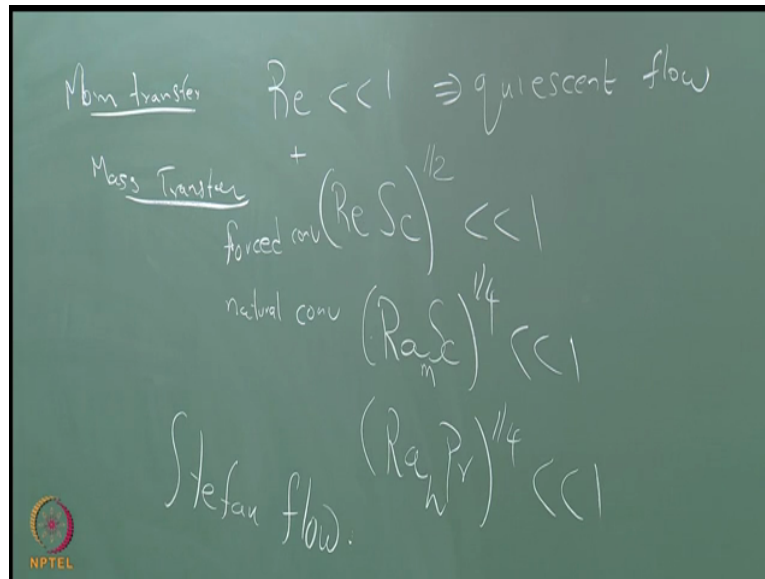 Mom transfer Re <<1 ⇒ quiescent flow
+
Mass Transfer
forced conv (Re Sc)^1/2 <<1
natural conv (Ra_m Sc)^1/4 <<1
(Ra_h Pr)^1/4 <<1
Stefan flow.
NPTEL